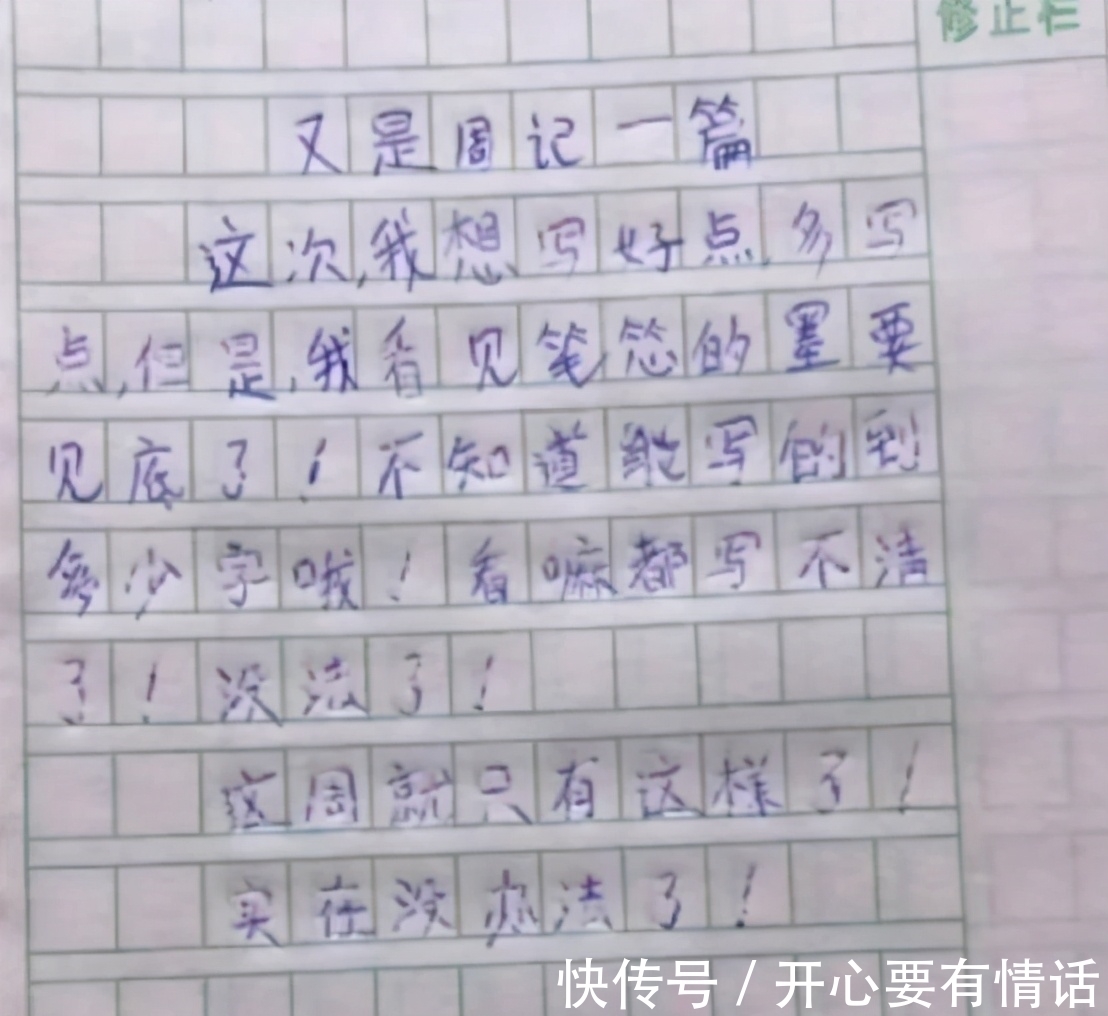 修正栏
又是周记一篇
这次,我想写好点,多写
点,但是,我看见笔芯的墨要
见底了!不知道能写的到
多少字哦!看嘛都写不清
了!没法了!
这周就只有这样了!
实在没办法了!
快传号 / 开心要有情话